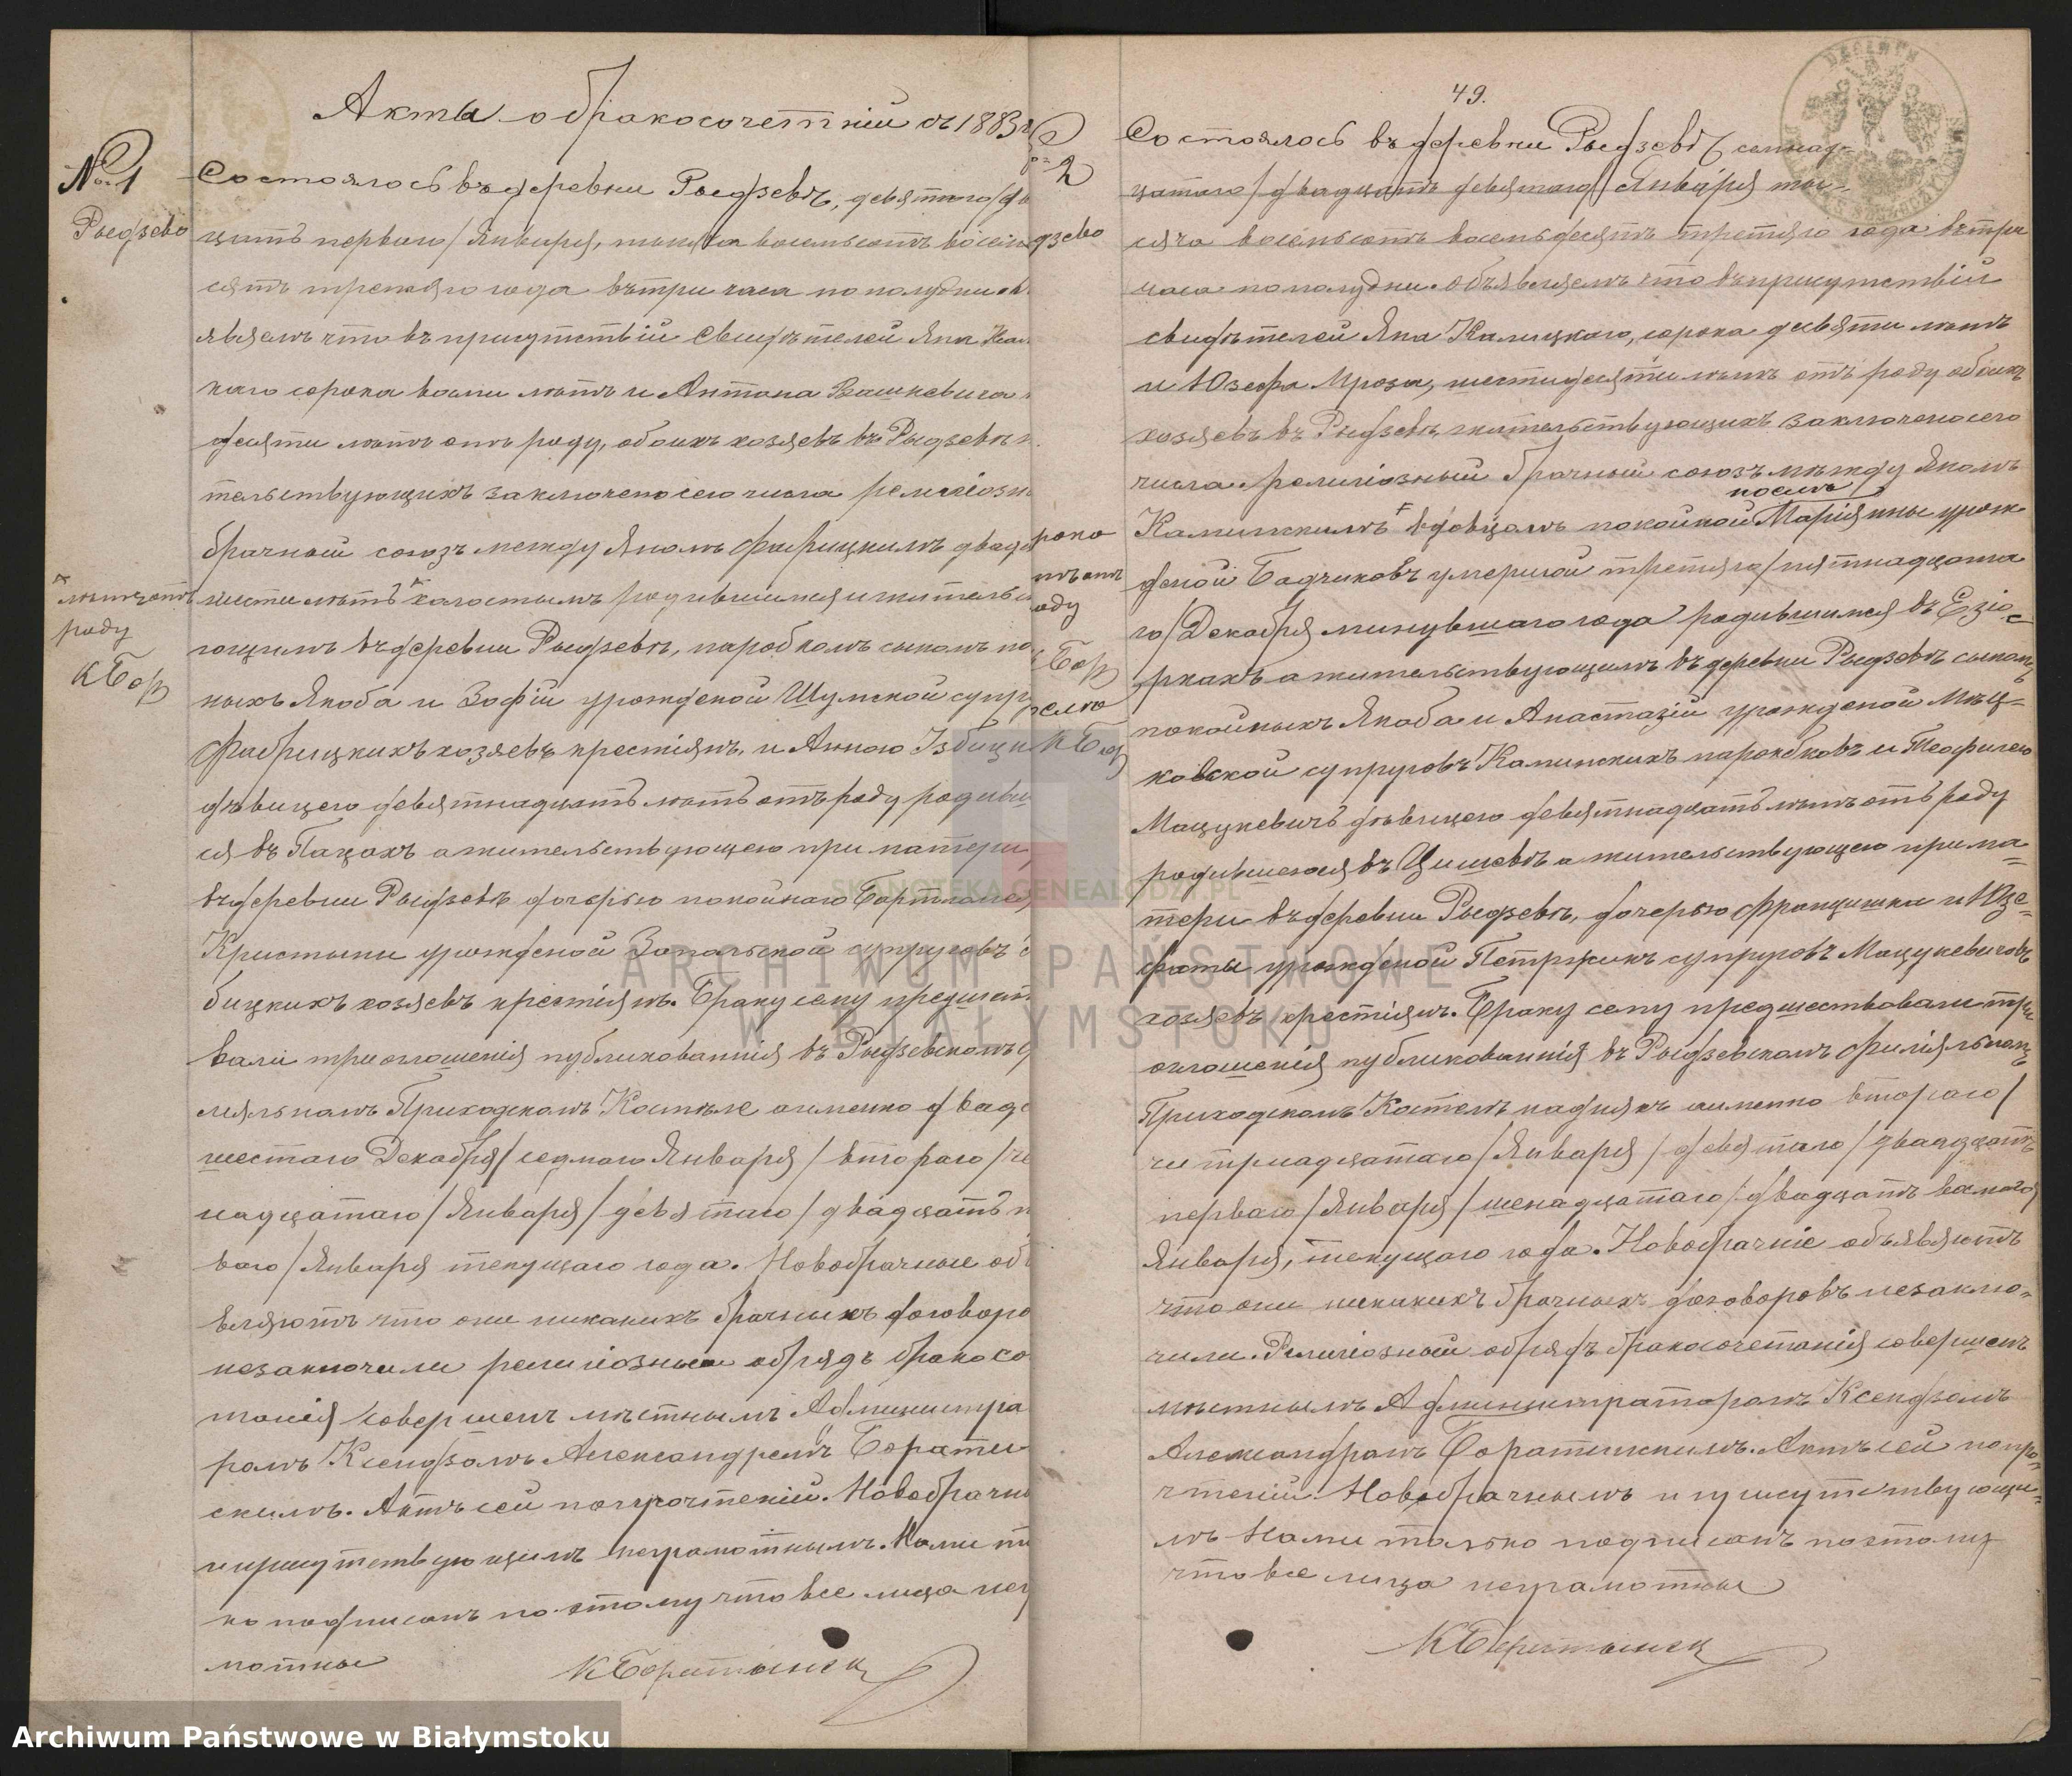 Акты о бракосочетаніи съ 1883
№ 1
Рыдзево
Состоялось въ деревни Рыдзевѣ, девятого/два
цать первого/ Января, тысяча восемьсотъ восемь
сятъ третяго года въ три часа по полудни об
являемъ что въ присутствіи Свидѣтелей Яна Кал
каго сорока восми лѣтъ и Антона Вашкевича
десяти лѣтъ отъ роду, обоихъ хозяевъ въ Рыдзевѣ
тельствующихъ заключено сего числа религіозн
брачный союзъ между Яномъ Фабрицкимъ двад
шести лѣтъ холостымъ родившимся и жительс
лѣтъ отъ
роду
КБор
ющимъ въ деревни Рыдзевѣ, паробкомъ сыномъ по
ныхъ Якоба и Зофіи урожденой Шумской супр
Фабрицкихъ хозяевъ крестіянъ, и Анною Избицк
дѣвицею девятнадцать лѣтъ отъ роду родивш
ся въ Пацохъ а жительствующею при матери
въ деревни Рыдзевѣ дочерью покойнаго Бартломея
Кристыны урожденой Запольской супруговъ
бицкихъ хозяевъ крестіянъ. Браку сему предшест
вали три оглошенія публикованнія въ Рыдзевскомъ ф
ляльномъ Приходскомъ Костелѣ а именно двад
шестаго Декабря/ седмаго Января/ втораго/че
надцатаго/ Января/ девятаго/ двадцать п
ваго/ Января текущаго года. Новобрачные об
вляютъ что они никакихъ брачныхъ договоро
незаключили религіозный обрядъ бракосо
танія совершенъ мѣстнымъ Администра
ромъ Ксендзомъ Александромъ Борати
скимъ. Актъ сей по прочтеніи. Новобрачны
и присутствующимъ неграмотнымъ. Нами т
ко подписанъ по этому что все лица нег
мотные
КБоратынск
2
дзево
роко
лѣтъ отъ
оду
КБор
КБор
49.
Состоялось въ деревни Рыдзевѣ семнад-
цатаго/ двадцать девятаго/ Января ты-
сяча восемьсотъ восемьдесятъ третяго года въ три
часа по полудни. Объявляемъ что въ присутствіи
свидѣтелей Яна Калицкаго, сорока девяти лѣтъ
и Юзефа Мроза, шестидесяти лѣтъ отъ роду обоихъ
хозяевъ въ Рыдзевѣ, жительствующихъ заключено сего
числа религіозный брачный союзъ между Яномъ
послѣ
Каминскимъ вдовцомъ покойной Маріянны урож
деной Бадчиковъ умершой третяго/ пятнадцата
го/ Декабря минувшаго года родившимся въ Езіо-
ркахъ а жительствующимъ въ деревни Рыдзевѣ сыномъ
покойныхъ Якоба и Анастазіи урожденой Мац-
ковской супруговъ Каминскихъ паробковъ и Теофилею
Мацукевичъ дѣвицею девятнадцать лѣтъ отъ роду
родившеюся въ Цишевѣ а жительствующею при ма-
тери въ деревни Рыдзевѣ, дочерью Францишка и Юзе-
фаты урожденой Петржикъ супруговъ Мацукевичовъ
хозяевъ крестіянъ. Браку сему предшествовали три
оглошенія публикованнія въ Рыдзевскомъ филіяльномъ
Приходскомъ Костелѣ надняхъ а именно втораго/
четрнадцатаго/ Января/ девятаго/ двадцать
перваго/ Января/ шенадцатаго/ двадцать васмаго
Января, текущаго года. Новобрачніе объявляютъ
что они никакихъ брачныхъ договоровъ незаклю-
чили. Религіозный обрядъ бракосочетанія совершенъ
мѣстнымъ Администраторомъ Ксендзомъ
Александромъ Боратинскимъ. Актъ сей по про-
чтеніи Новобрачнымъ и присутствующи-
мъ Нами только подписанъ по этому
что все лица неграмотные
КБоратынск
SKANOTEKA.GENEALODZY.PL
ARCHIWUM PAŃSTWOWE
W BIAŁYMSTOKU
Archiwum Państwowe w Białymstoku